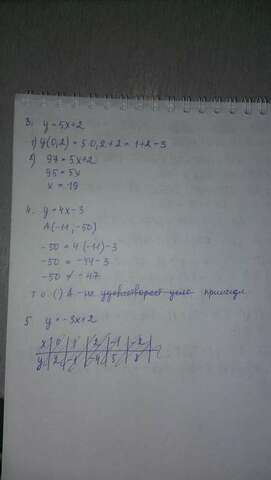 3. y=5x+2
1) y(0,2)=5·0,2+2=1+2=3
2) 97=5x+2
95=5x
x=19
4. y=4x-3
A(-11,-50)
-50=4·(-11)-3
-50=-44-3
-50≠-47
т.о. () A - не принадл
5 y=-3x+2
x | 0 | 1 | 2 | -1 | -2
y | 2 | -1 | -4 | 5 | 8